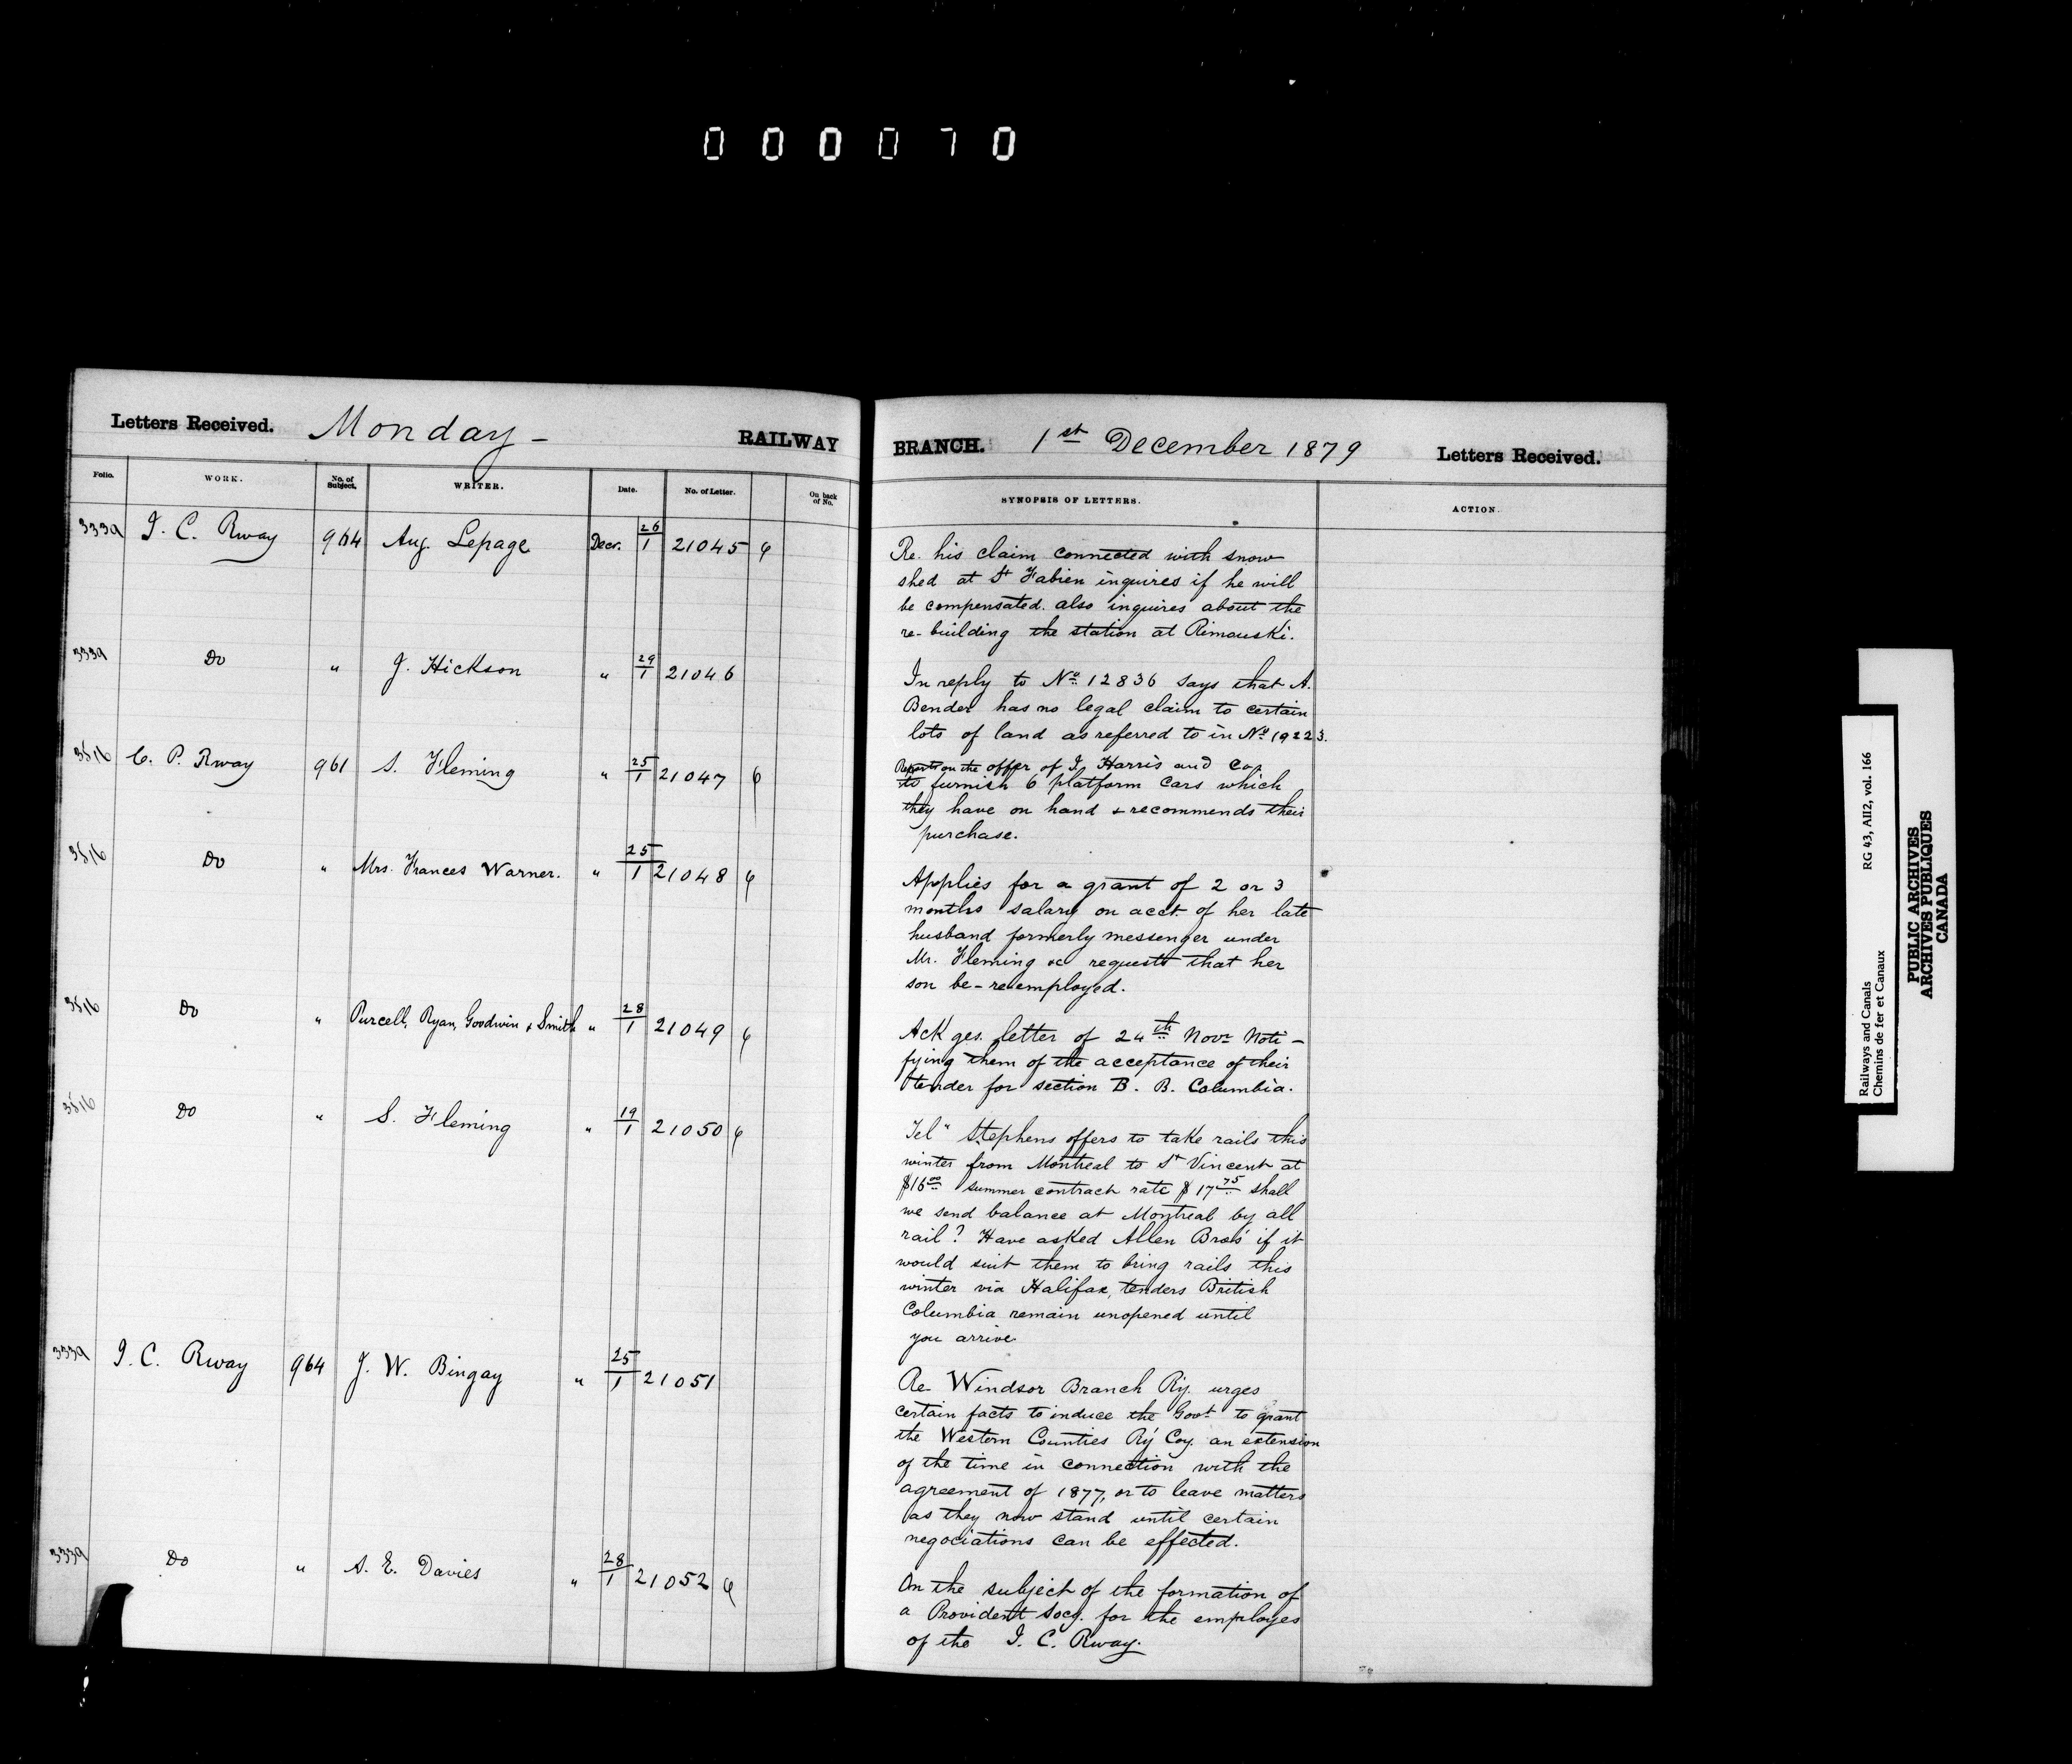 000070
Letters Received. Monday - RAILWAY
Folio. WORK. No. of Subject. WRITER. Date. No. of Letter. On back of No.
3339 I. C. Rway 964 Aug. Lepage Decr. 26/1 21045
3339 Do " J. Hickson " 29/1 21046
3516 C. P. Rway 961 S. Fleming " 25/1 21047
3516 Do " Mrs. Frances Warner. " 25/1 21048
3516 Do " Purcell, Ryan, Goodwin & Smith " 28/1 21049
3516 Do " S. Fleming " 19/1 21050
3339 I. C. Rway 964 J. W. Bingay " 25/1 21051
3339 Do " S. E. Davies " 28/1 21052
BRANCH. 1st December 1879 Letters Received.
SYNOPSIS OF LETTERS. ACTION.
Re. his claim connected with snow
shed at St Fabien inquires if he will
be compensated. also inquires about the
re-building the station at Rimouski.
In reply to No. 12836 says that A.
Bender has no legal claim to certain
lots of land as referred to in No. 19223.
Reports on the offer of J. Harris and Co.
to furnish 6 platform cars which
they have on hand & recommends their
purchase.
Applies for a grant of 2 or 3
months salary on acct. of her late
husband formerly messenger under
Mr. Fleming &c requests that her
son be-reemployed.
Ack ges. letter of 24th Novr Noti-
fying them of the acceptance of their
tender for section B. B. Columbia.
Tel" Stephens offers to take rails this
winter from Montreal to St Vincent at
$16.00 summer contract rate $17.75 shall
we send balance at Montreal by all
rail? Have asked Allen Bros if it
would suit them to bring rails this
winter via Halifax, tenders British
Columbia remain unopened until
you arrive
Re Windsor Branch Ry. urges
certain facts to induce the Govt. to grant
the Western Counties Ry Coy. an extension
of the time in connection with the
agreement of 1877, or to leave matters
as they now stand until certain
negociations can be effected.
On the subject of the formation of
a Provident Socy. for the employes
of the I. C. Rway.
Railways and Canals RG 43, AII2, vol. 166
Chemins de fer et Canaux
PUBLIC ARCHIVES
ARCHIVES PUBLIQUES
CANADA